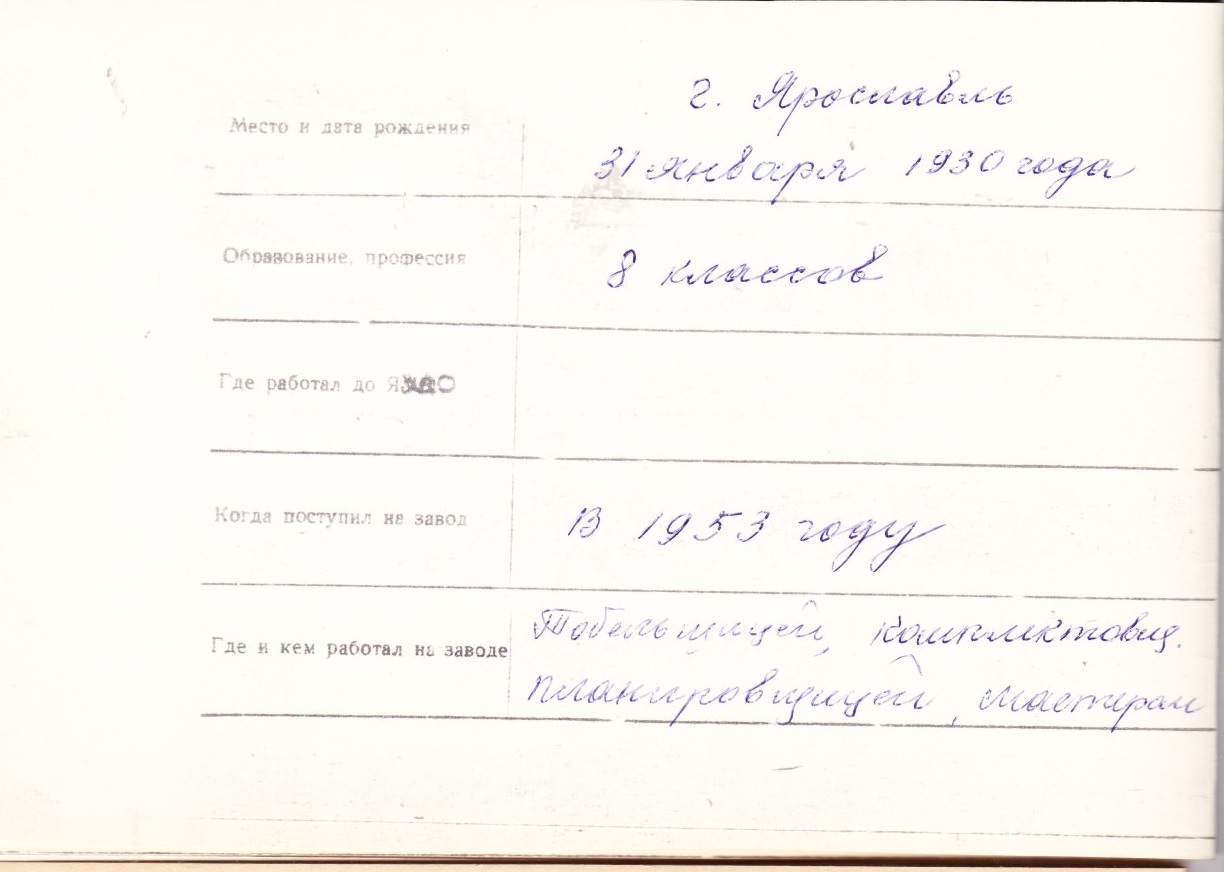 г. Ярославль
Место и дата рождения
31 января 1930 года
Образование, профессия
8 классов
Где работал до
Когда поступил на завод
В 1953 году
Табельщицей, комплектовщ.
Где и кем работал на заводе
планировщицей, мастером